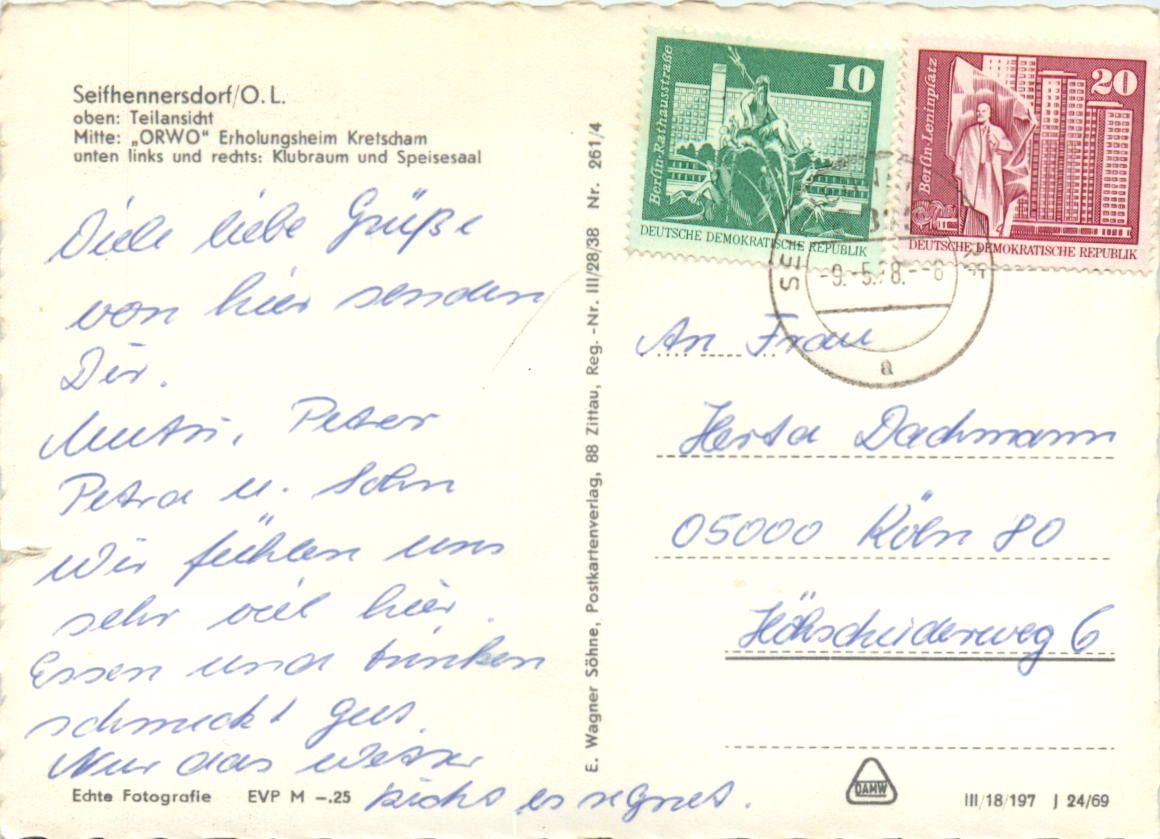 Seifhennersdorf/O. L.
oben: Teilansicht
Mitte: „ORWO" Erholungsheim Kretscham
unten links und rechts: Klubraum und Speisesaal
Viele liebe Grüße
von hier senden
Dir.
Mutti, Peter
Petra u. Sohn
Wir fühlen uns
sehr viel hier.
Essen und trinken
schmeckt gut.
Nur das Wetter
es regnet.
Echte Fotografie EVP M –.25
E. Wagner Söhne, Postkartenverlag, 88 Zittau, Reg.-Nr. III/28/38 Nr. 261/4
Berlin-Rathausstraße
10
DEUTSCHE DEMOKRATISCHE REPUBLIK
Berlin-Leninplatz
20
DEUTSCHE DEMOKRATISCHE REPUBLIK
SE
-9.-5. 8.--8
a
An Frau
Herta Dachmann
05000 Köln 80
Höhscheiderweg 6
DAMW
III/18/197 J 24/69